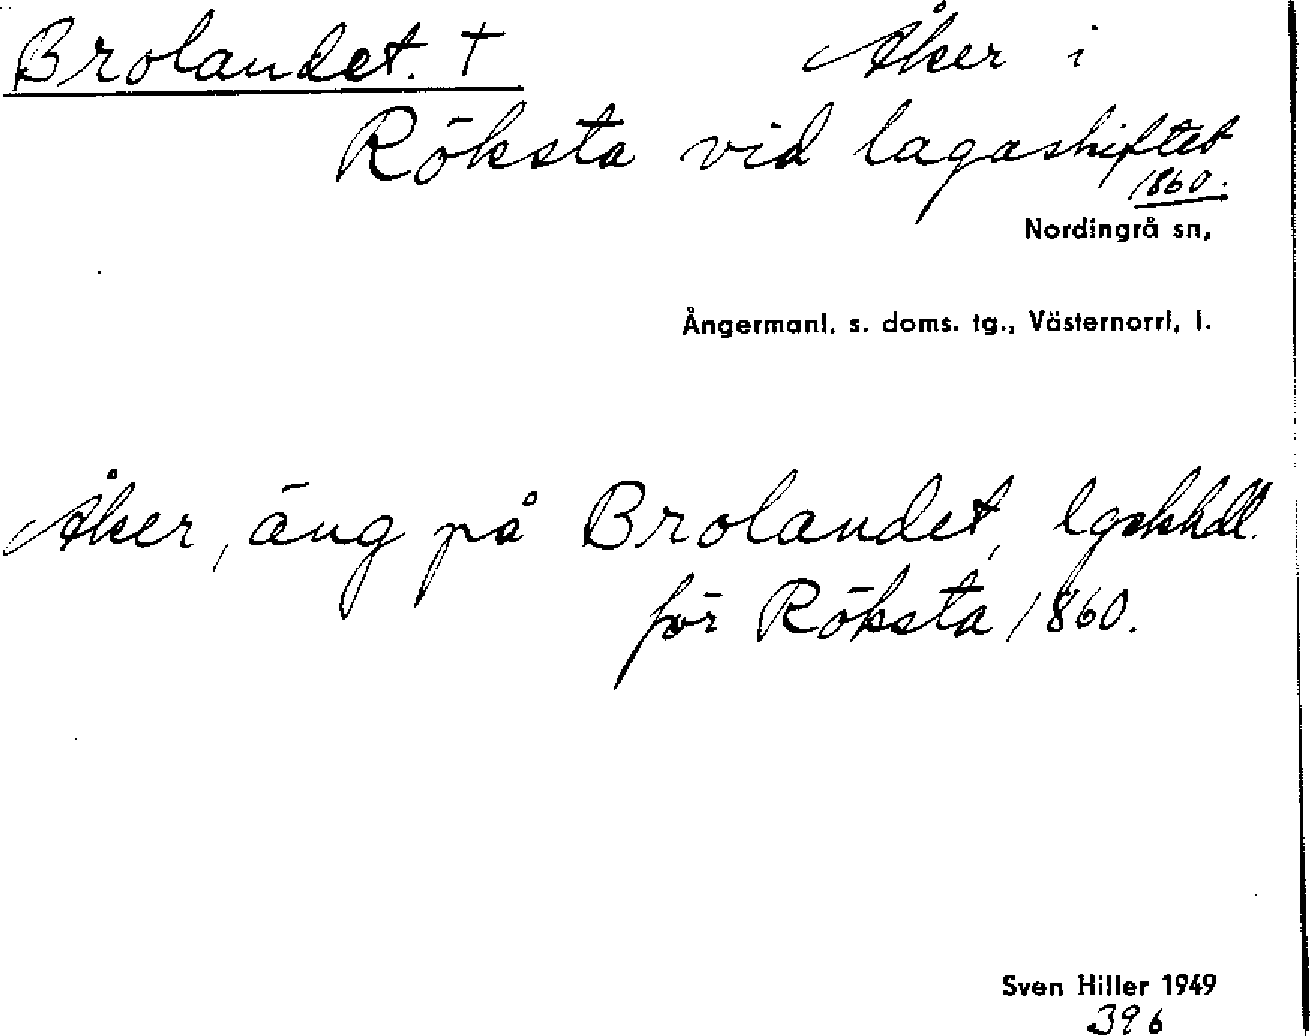 Brolandet. † Åker i
Röksta vid lagaskiftet
1860.
Nordingrå sn,
Ångermanl. s. doms. tg., Västernorrl. l.
Åker, äng på Brolandet, lgskhdl.
för Röksta 1860.
Sven Hiller 1949
396